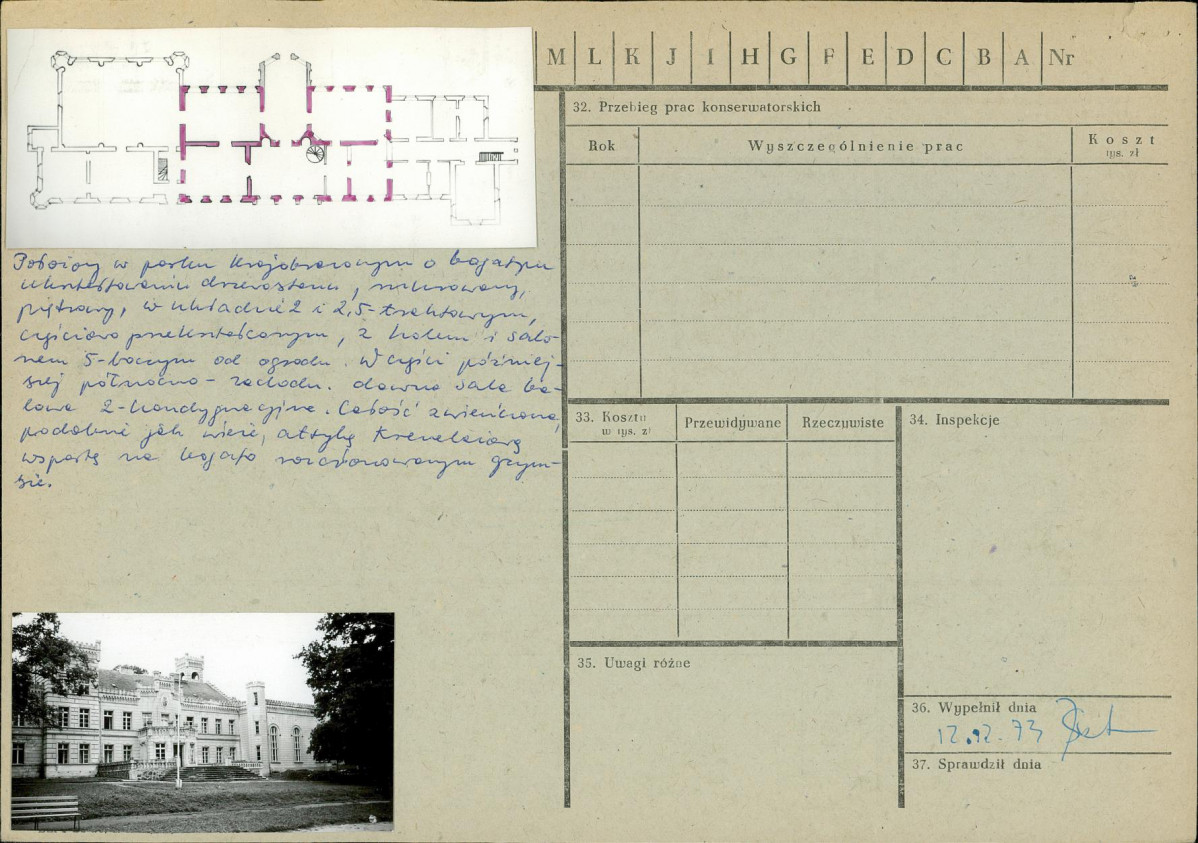 M L K J I H G F E D C B A Nr
32. Przebieg prac konserwatorskich
Rok
Wyszczególnienie prac
Koszt
tys. zł
Położony w parku krajobrazowym o bogatym
ukształtowaniu drzewostanu, murowany,
piętrowy, w układzie 2 i 2,5-traktowym,
częściowo przekształconym, z holem i salo-
nem 5-bocznym od ogrodu. W części później-
szej północno-zachodn. dawna sala ba-
lowa 2-kondygnacyjna. Całość zwieńczona,
podobnie jak wieże, attyką krenelażową
wspartą na bogato rozczłonowanym gzym-
sie.
33. Koszty
w tys. zł
Przewidywane
Rzeczywiste
34. Inspekcje
35. Uwagi różne
36. Wypełnił dnia
12.12.73
37. Sprawdził dnia